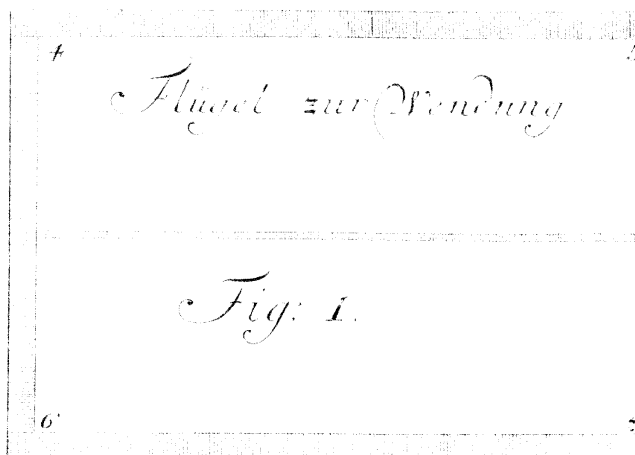 4
Flügel zur Wendung
Fig: 1.
6